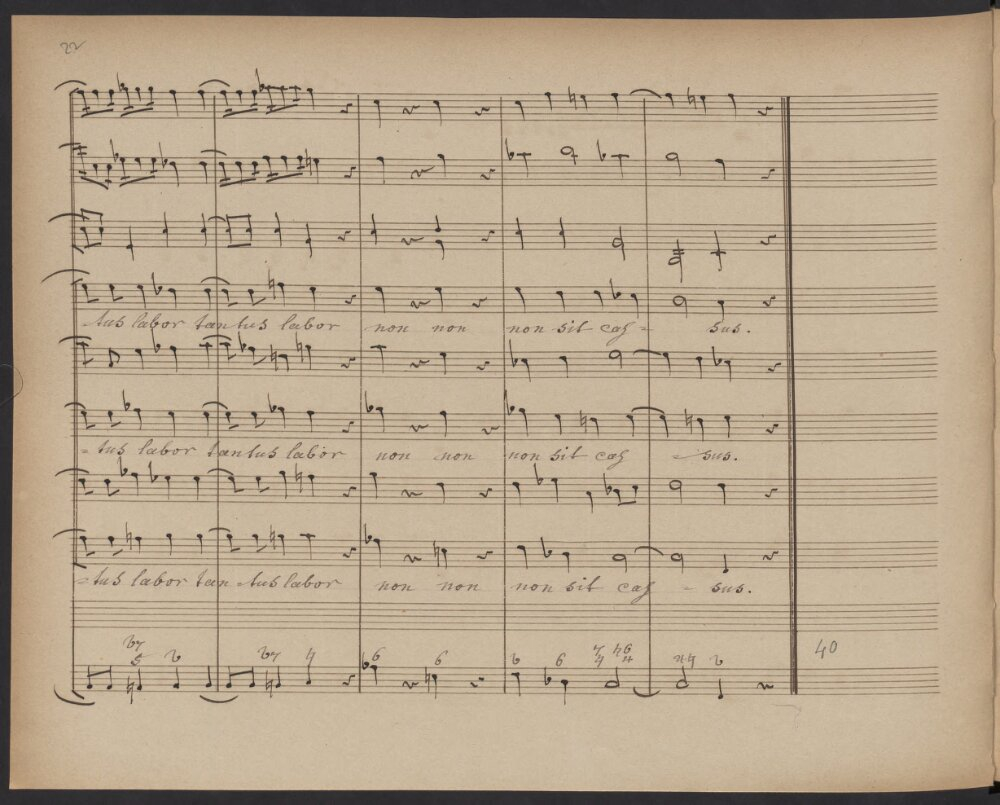 22
-tus labor tantus labor non non non sit cas= sus.
-tus labor tantus labor non non non sit cas =sus.
=tus labor tan=tus labor non non non sit cas = sus.
40